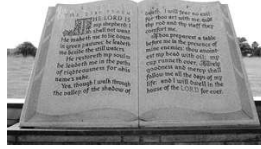 THE 23rd PSALM
THE LORD IS
my shepherd; I
shall not want
He maketh me to lie down
in green pastures; he leadeth
me beside the still waters.
He restoreth my soul: he
leadeth me in the paths
of righteousness for his
name's sake.
Yea, though I walk through
the valley of the shadow of
death, I will fear no evil
for thou art with me: thy
rod and thy staff they
comfort me.
Thou preparest a table
before me in the presence of
mine enemies: thou anointest
my head with oil; my
cup runneth over.
goodness and mercy shall
follow me all the days of my
life: and I will dwell in the
house of the LORD for ever.